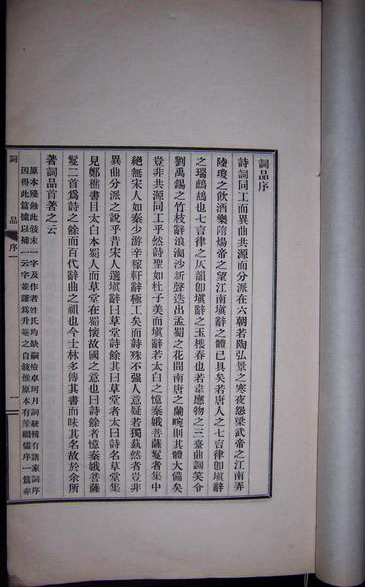 詞品序
詩詞同工而異曲共源而分派在六朝若陶弘景之寒夜怨梁武帝之江南弄
陸瓊之飲酒樂隋煬帝之望江南塡辭之體已具矣若唐人之七言律卽塡辭
之瑞鷓鴣也七言律之仄韻卽塡辭之玉樓春也若韋應物之三臺曲調笑令
劉禹錫之竹枝辭浪淘沙新聲迭出孟蜀之花間南唐之蘭畹則其體大備矣
豈非共源同工乎然詩聖如杜子美而塡辭若太白之憶秦娥菩薩鬘者集中
絕無宋人如秦少游辛稼軒辭極工矣而詩殊不強人意疑若獨蓺然者豈非
異曲分派之說乎昔宋人選塡辭曰草堂詩餘其曰草堂者太白詩名草堂集
見鄭樵書目太白本蜀人而草堂在蜀懷故國之意也曰詩餘者憶秦娥菩薩
鬘二首爲詩之餘而百代辭曲之祖也今士林多傳其書而昧其名故於余所
著詞品首著之云
原本殘蝕此敍末一字及作者姓氏均缺嗣檢卓珂月詞統稱有諸家詞序
因得此篇據以補一云字並識爲升菴之自敍惟原本有序一篇亦
詞品 序一
一